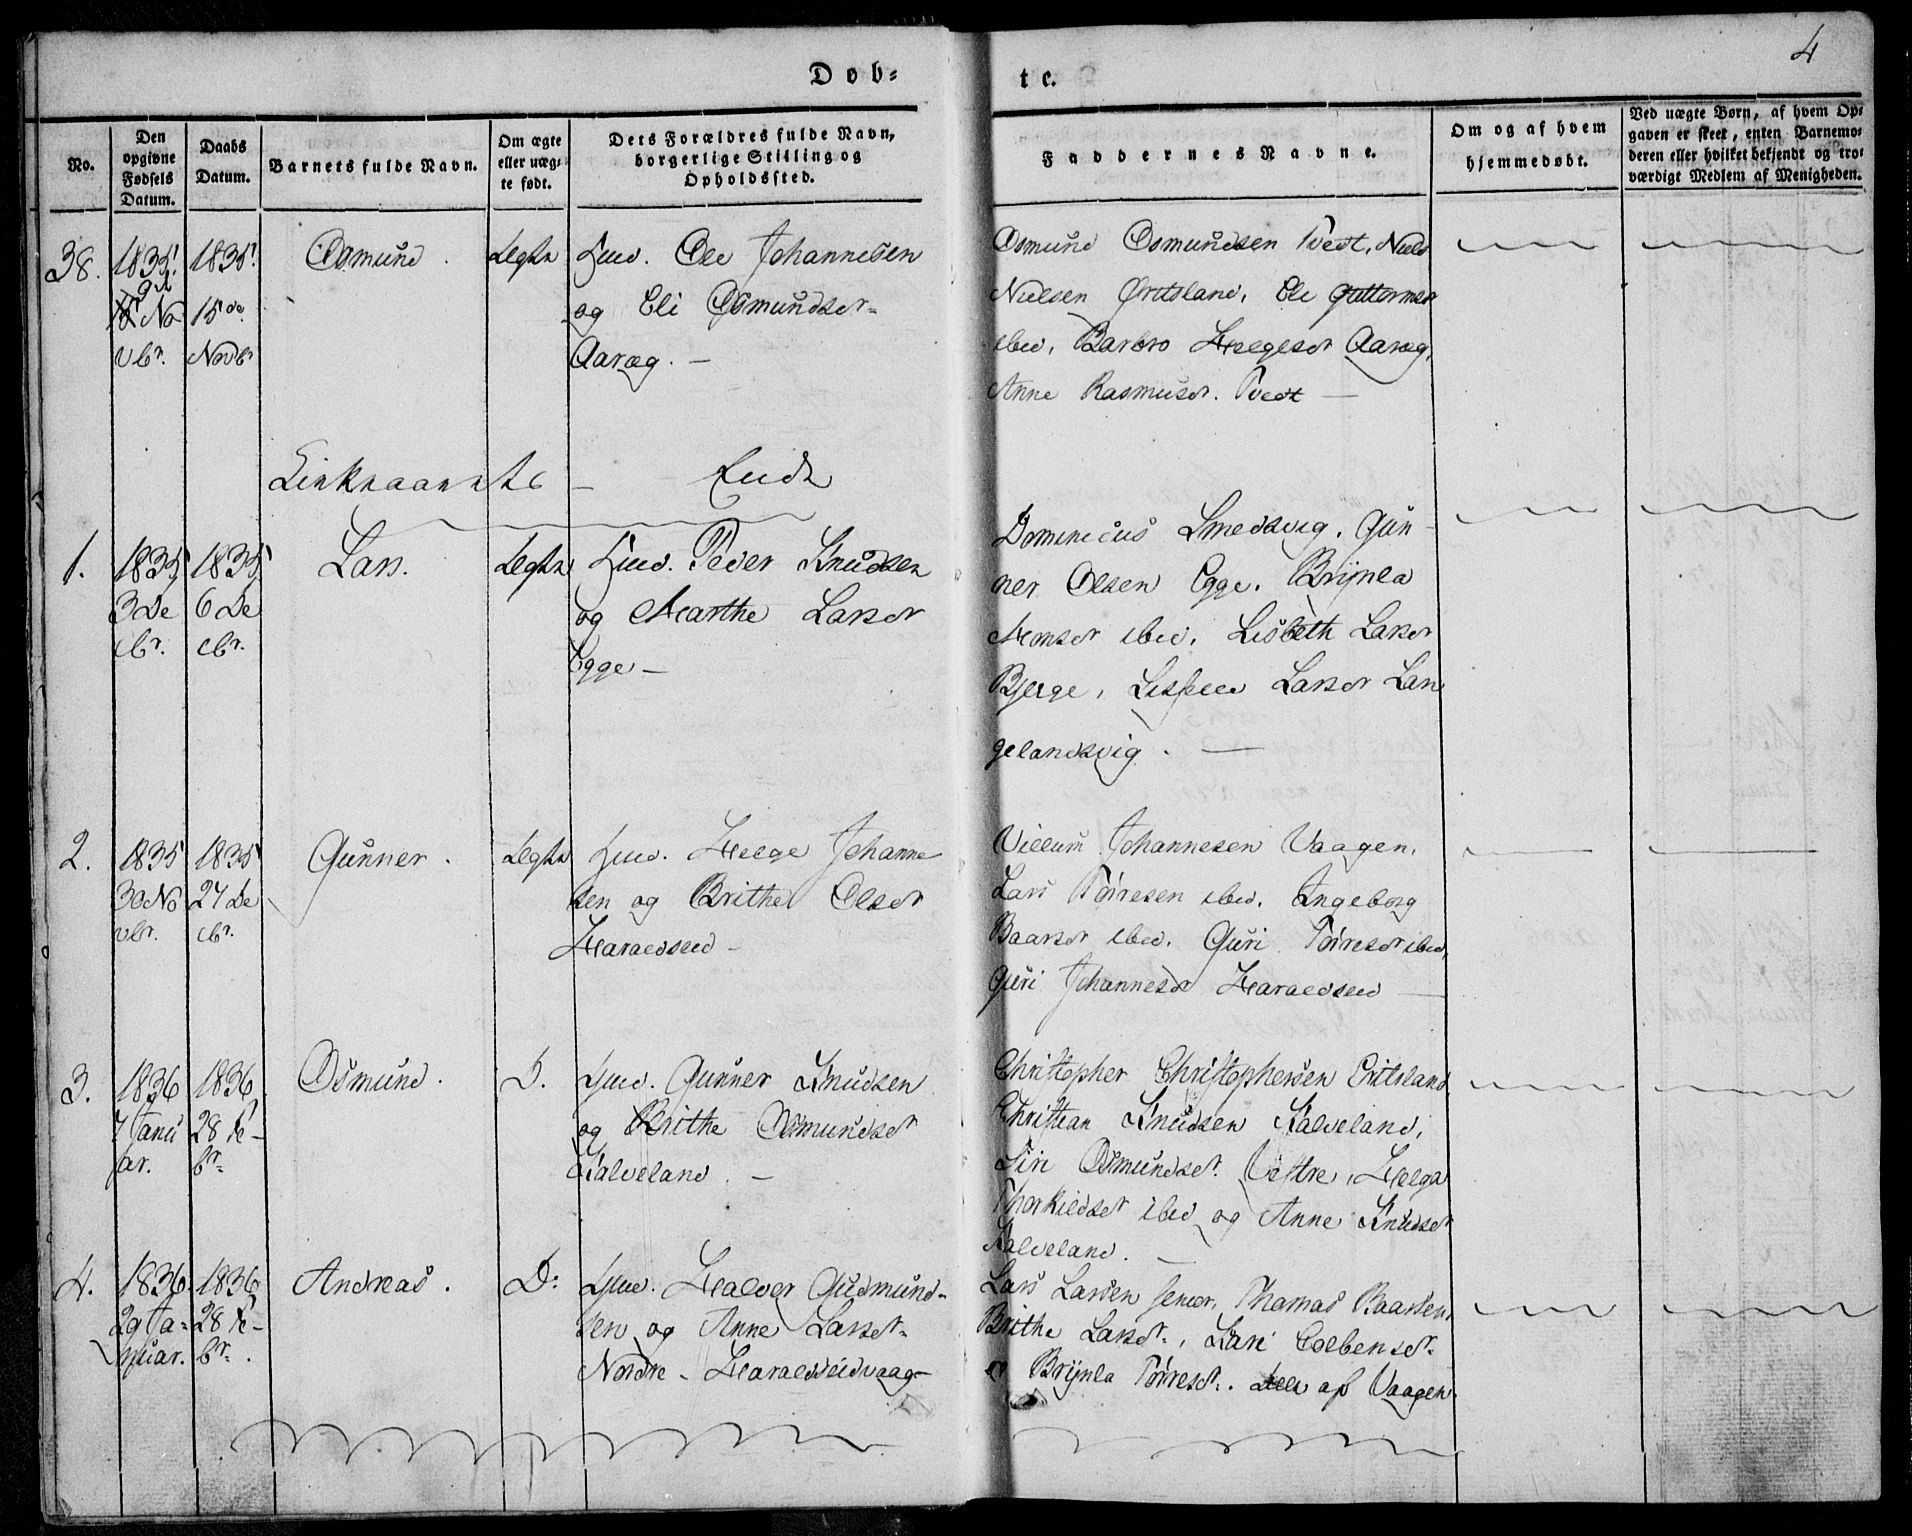 4
Døb=
te.
No.
Den
opgivne
Fødsels
Datum.
Daabs
Datum.
Barnets fulde Navn.
Om ægte
eller uæg=
te født.
Dets Forældres fulde Navn,
borgerlige Stilling og
Opholdssted.
Faddernes Navne.
Om og af hvem
hjemmedøbt.
Ved uægte Børn, af hvem Op=
gaven er skeet, enten Barnemo=
deren eller hvilket bekjendt og tro=
værdigt Medlem af Menigheden.
38.
1835.
No
vbr.
1835.
15de
Novbr
Osmund.
Ægte
Gmd. Ole Johannesen
og Eli Osmundsdr
Aaræg. —
Osmund Osmundsen Tvedt, Niels
Nielsen Østsland, Eli Guttormsdr
ibid, Barbro Helgesdr Aaræg,
Anne Rasmusdr. Tvedt —
Ende
1.
1835
3 De
cbr.
1835
6 De
cbr.
Lars.
Ægte
Gmd. Peder Knudsen
og Marthe Larsdr
Egge —
Dominicus Smedsvig, Gun-
ner Olsen Egge, Brynla
Monsdr ibid, Lisbeth Larsdr
Bjerge, Larsdr Lan
gelandsvig. —
2.
1835
30 No
vbr.
1835
27 De
cbr.
Gunner.
Ægte
Gmd. Helge Johanne
sen og Brithe Olsdr
Haraldseid —
Villum Johannesen Vaagen,
Lars Tørresen ibid, Ingeborg
Baarsdr ibid, Guri Tørresdr ibid,
Guri Johannesdr Haraldseid —
3.
1836
7 Janu
ar.
1836
28 Fe-
br.
Osmund.
D.
Gmd. Gunner Knudsen
og Brithe Osmundsdr
Kalveland. —
Christopher Christophersen Østsland,
Christian Knudsen Kalveland,
Siri Osmundsdr. Østre, Helga
Thorkildsdr ibid og Anne Knudsdr
Kalveland. —
4.
1836.
29 Ja=
nuar.
1836
28 Fe-
br.
Andreas.
D:
Gmd. Halvor Gudmund-
sen og Anne Larsdr
Nordre - Haraldseidvaag
Lars Larsen senior, Thomas Baarsen,
Brithe Larsdr., Kari Colbensdr.
og Brynla Tørresdr. Alle af Vaagen.